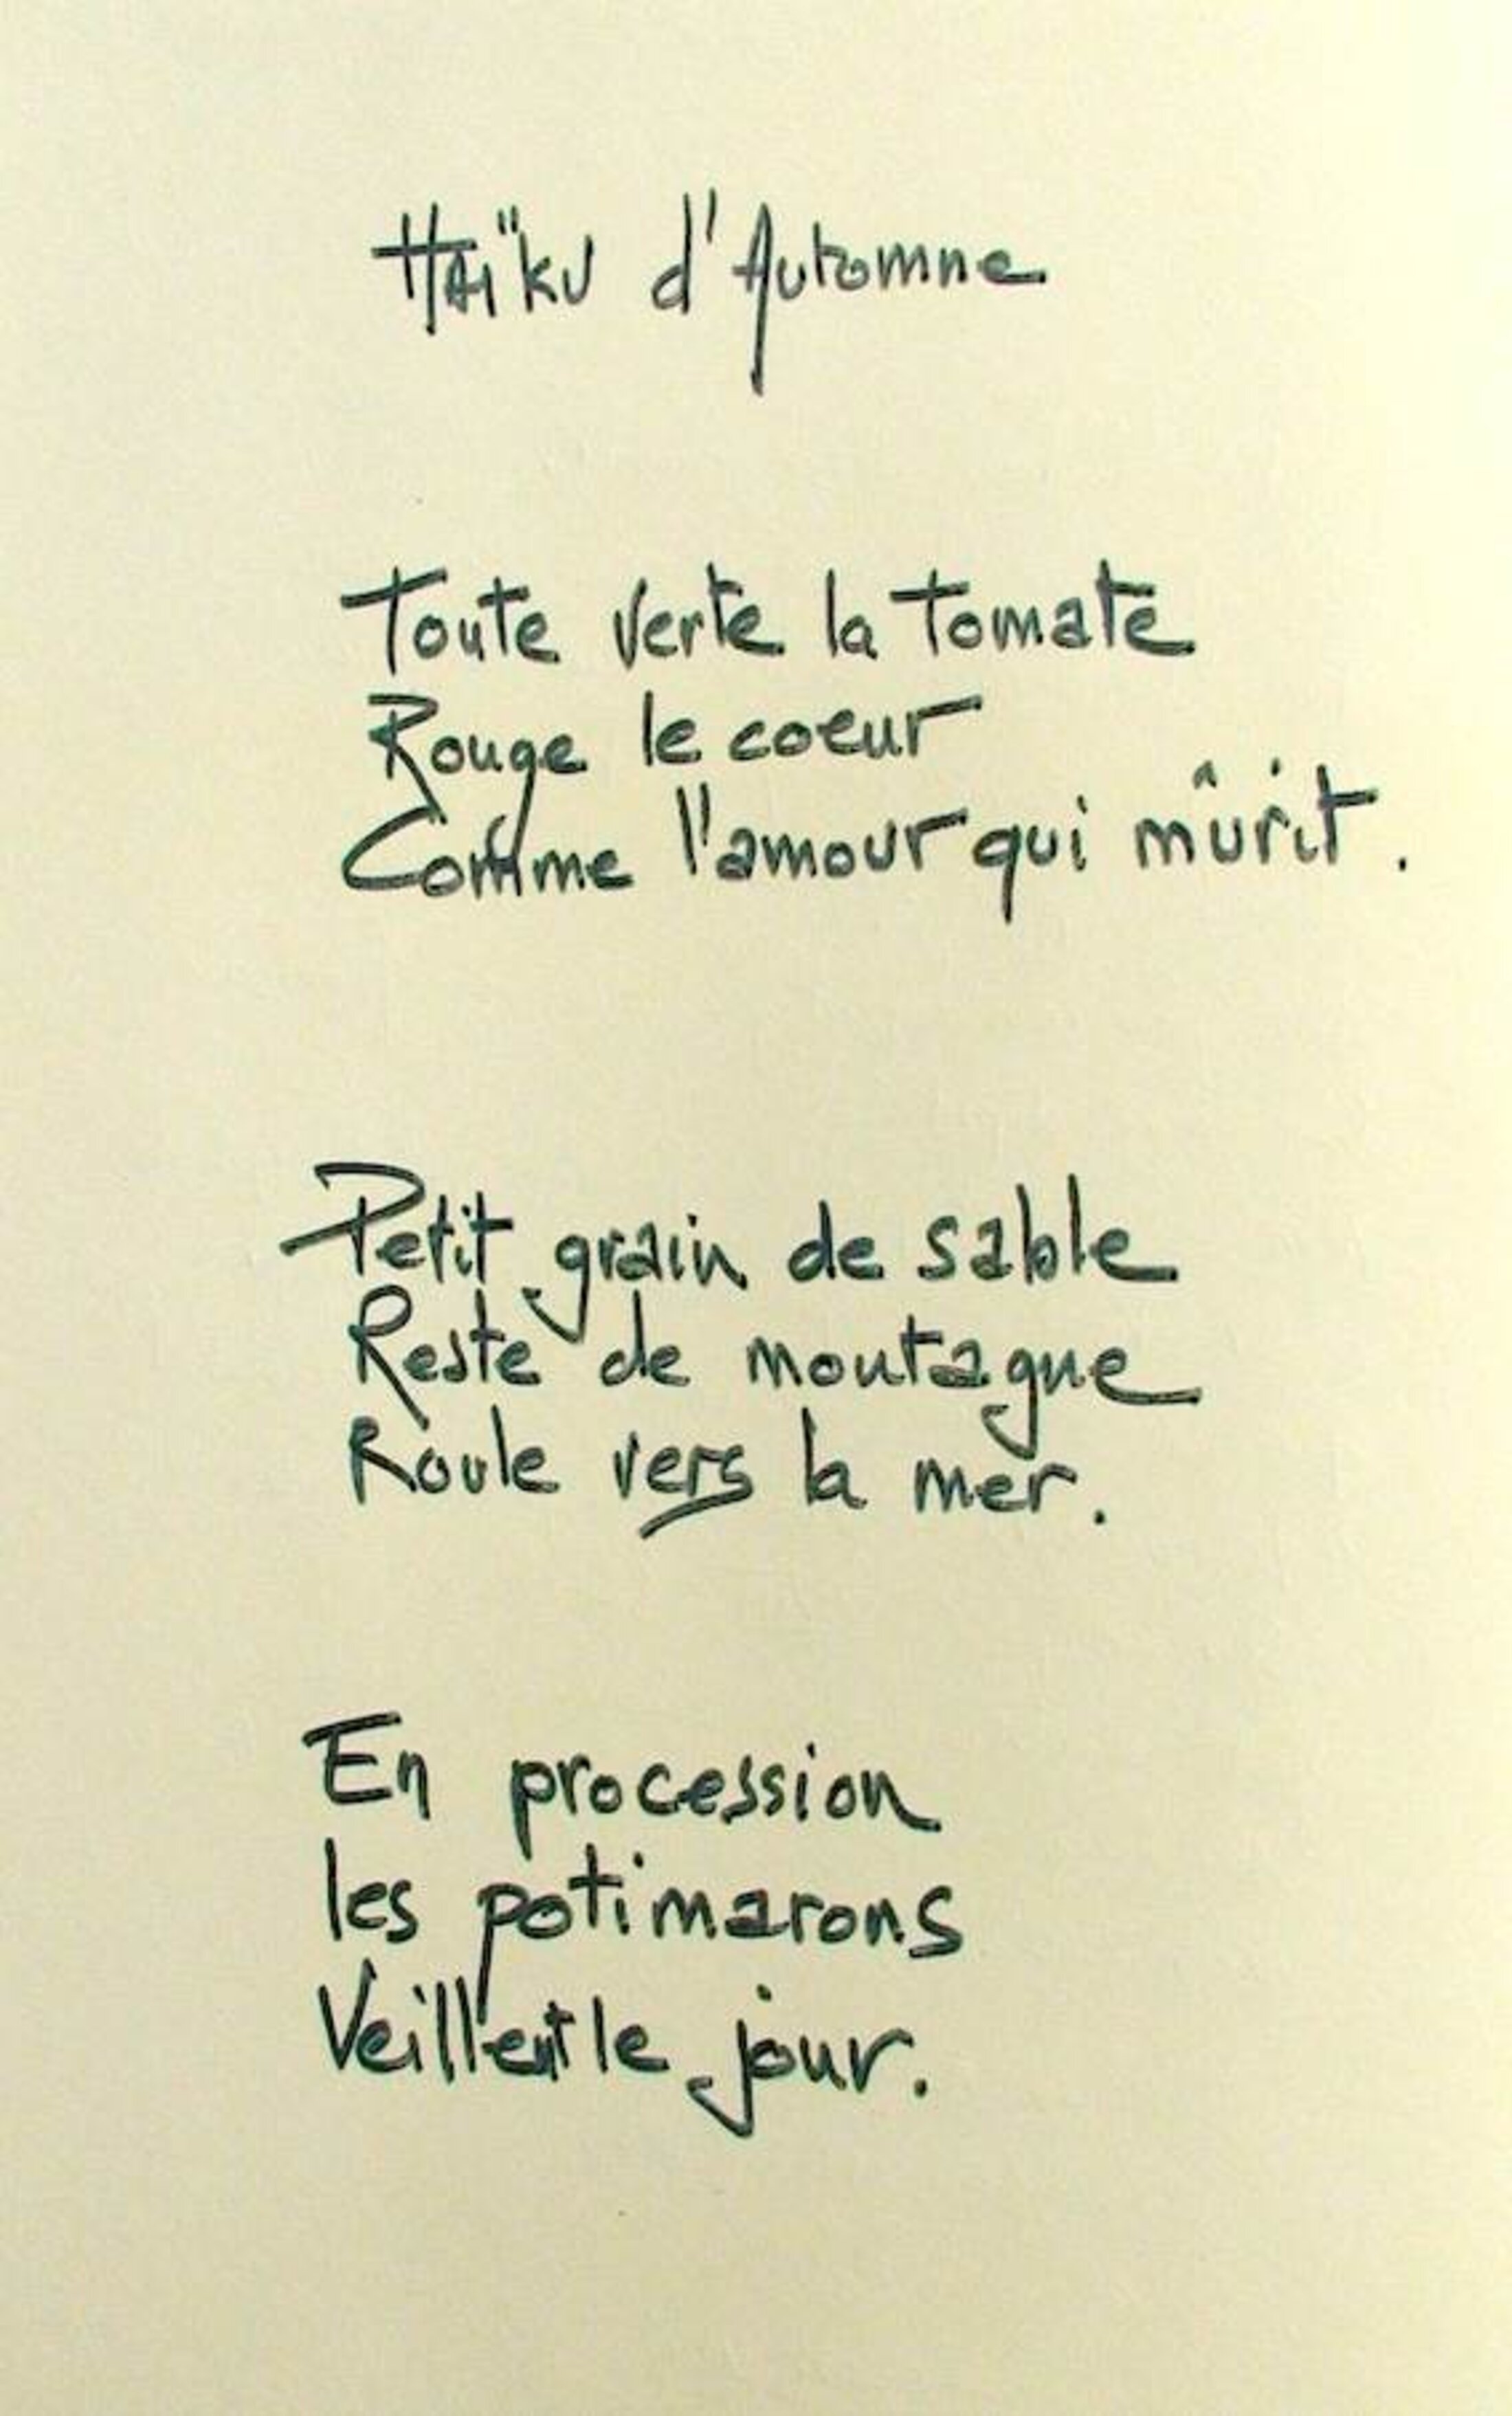 Haïku d'Automne
Toute verte la tomate
Rouge le coeur
Comme l'amour qui mûrit.
Petit grain de sable
Reste de montagne
Roule vers la mer.
En procession
les potimarons
Veillent le jour.